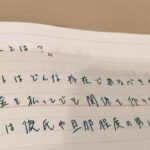 とは？
はどんな存在であるべきか
金を払ってでも関係を
は彼氏や旦那程度の男